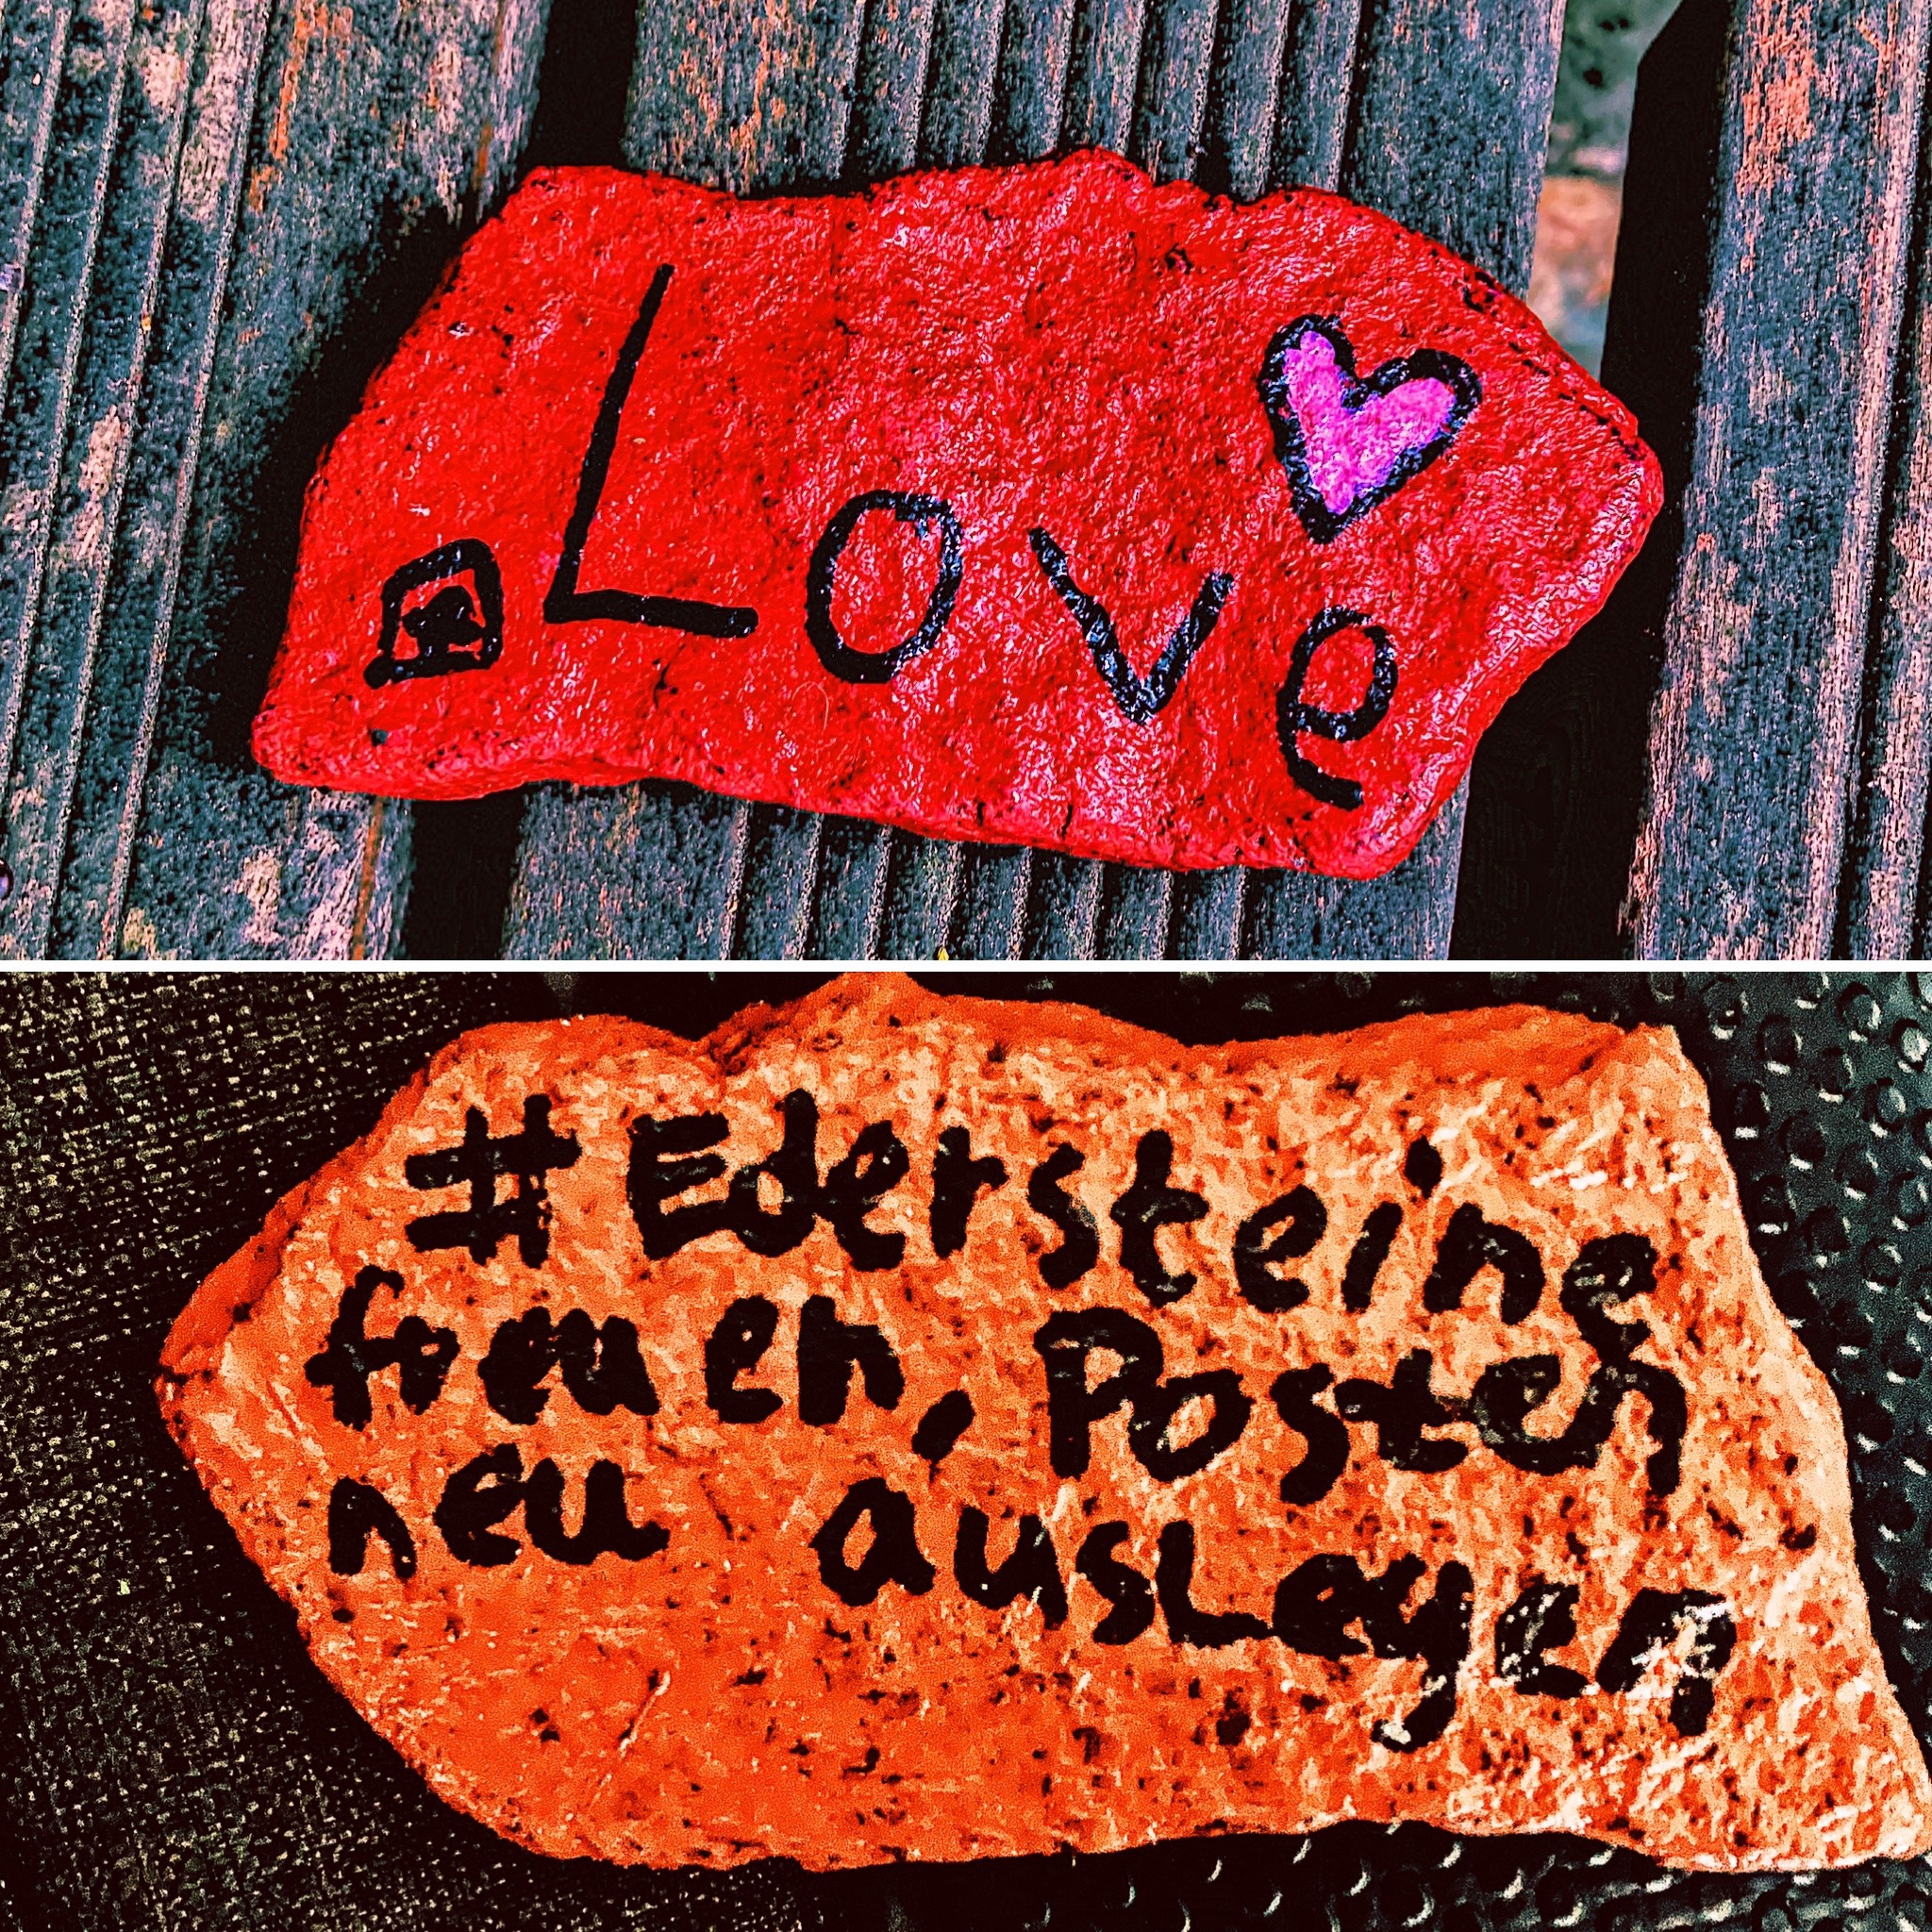 Love
#Edersteine
freuen, Posten
neu auslegen